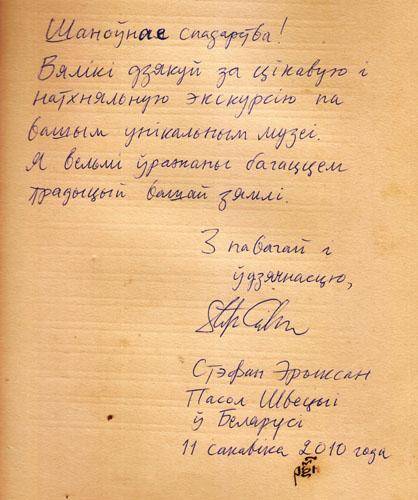 Шаноўнае спадарства!
Вялікі дзякуй за цікавую і
натхняльную экскурсію па
вашым унікальным музеі.
Я вельмі ўражаны багаццем
традыцый вашай зямлі.
З павагай і
ўдзячнасцю,
Стэфан Эрыксан
Пасол Швецыі
ў Беларусі
11 сакавіка 2010 года